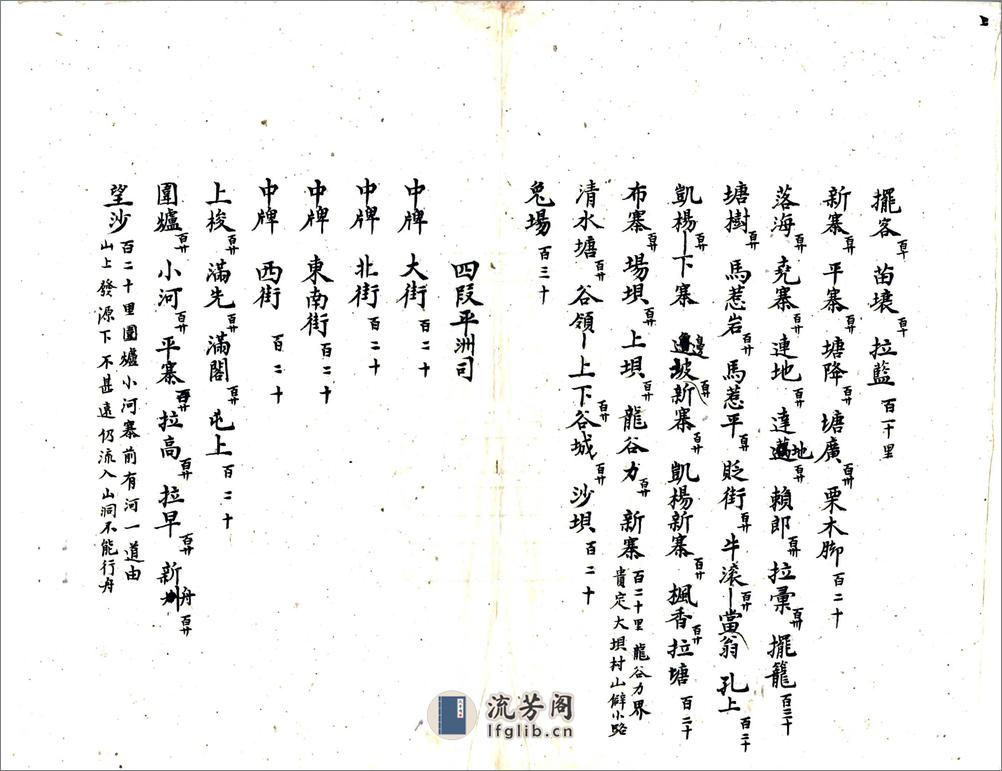 擺客百十 苗壤百十 拉藍百一十里
新寨百十 平寨百廿 塘降百廿 塘廣百卅 栗木脚百二十
落海百廿 堯寨百廿 連地 達地百廿 賴郎百卅 拉彙百卅 擺籠百三十
塘樹百廿 馬惹岩百廿 馬惹平 貶街百廿 牛滾百廿 當翁 孔上百二十
凱楊百廿 下寨 邊坡新寨百廿 凱楊新寨百廿 楓香百廿 拉塘百二十
布寨百廿 場埧百廿 上埧百廿 龍谷力百廿 新寨百二十里龍谷力界貴定大埧村山僻小路
清水塘百廿 谷領 上下谷城百廿 沙埧百二十
兔場百三十
四段平洲司
中牌 大街百二十
中牌 北街百二十
中牌 東南街百二十
中牌 西街百二十
上梭百廿 滿先百廿 滿閣百廿 屯上百二十
圍爐百廿 小河百廿 平寨百廿 拉高百廿 拉早百廿 新舟百廿
望沙百二十里圍爐小河寨前有河一道由山上發源下不甚遠仍流入山洞不能行舟
流芳阁
lfglib.cn